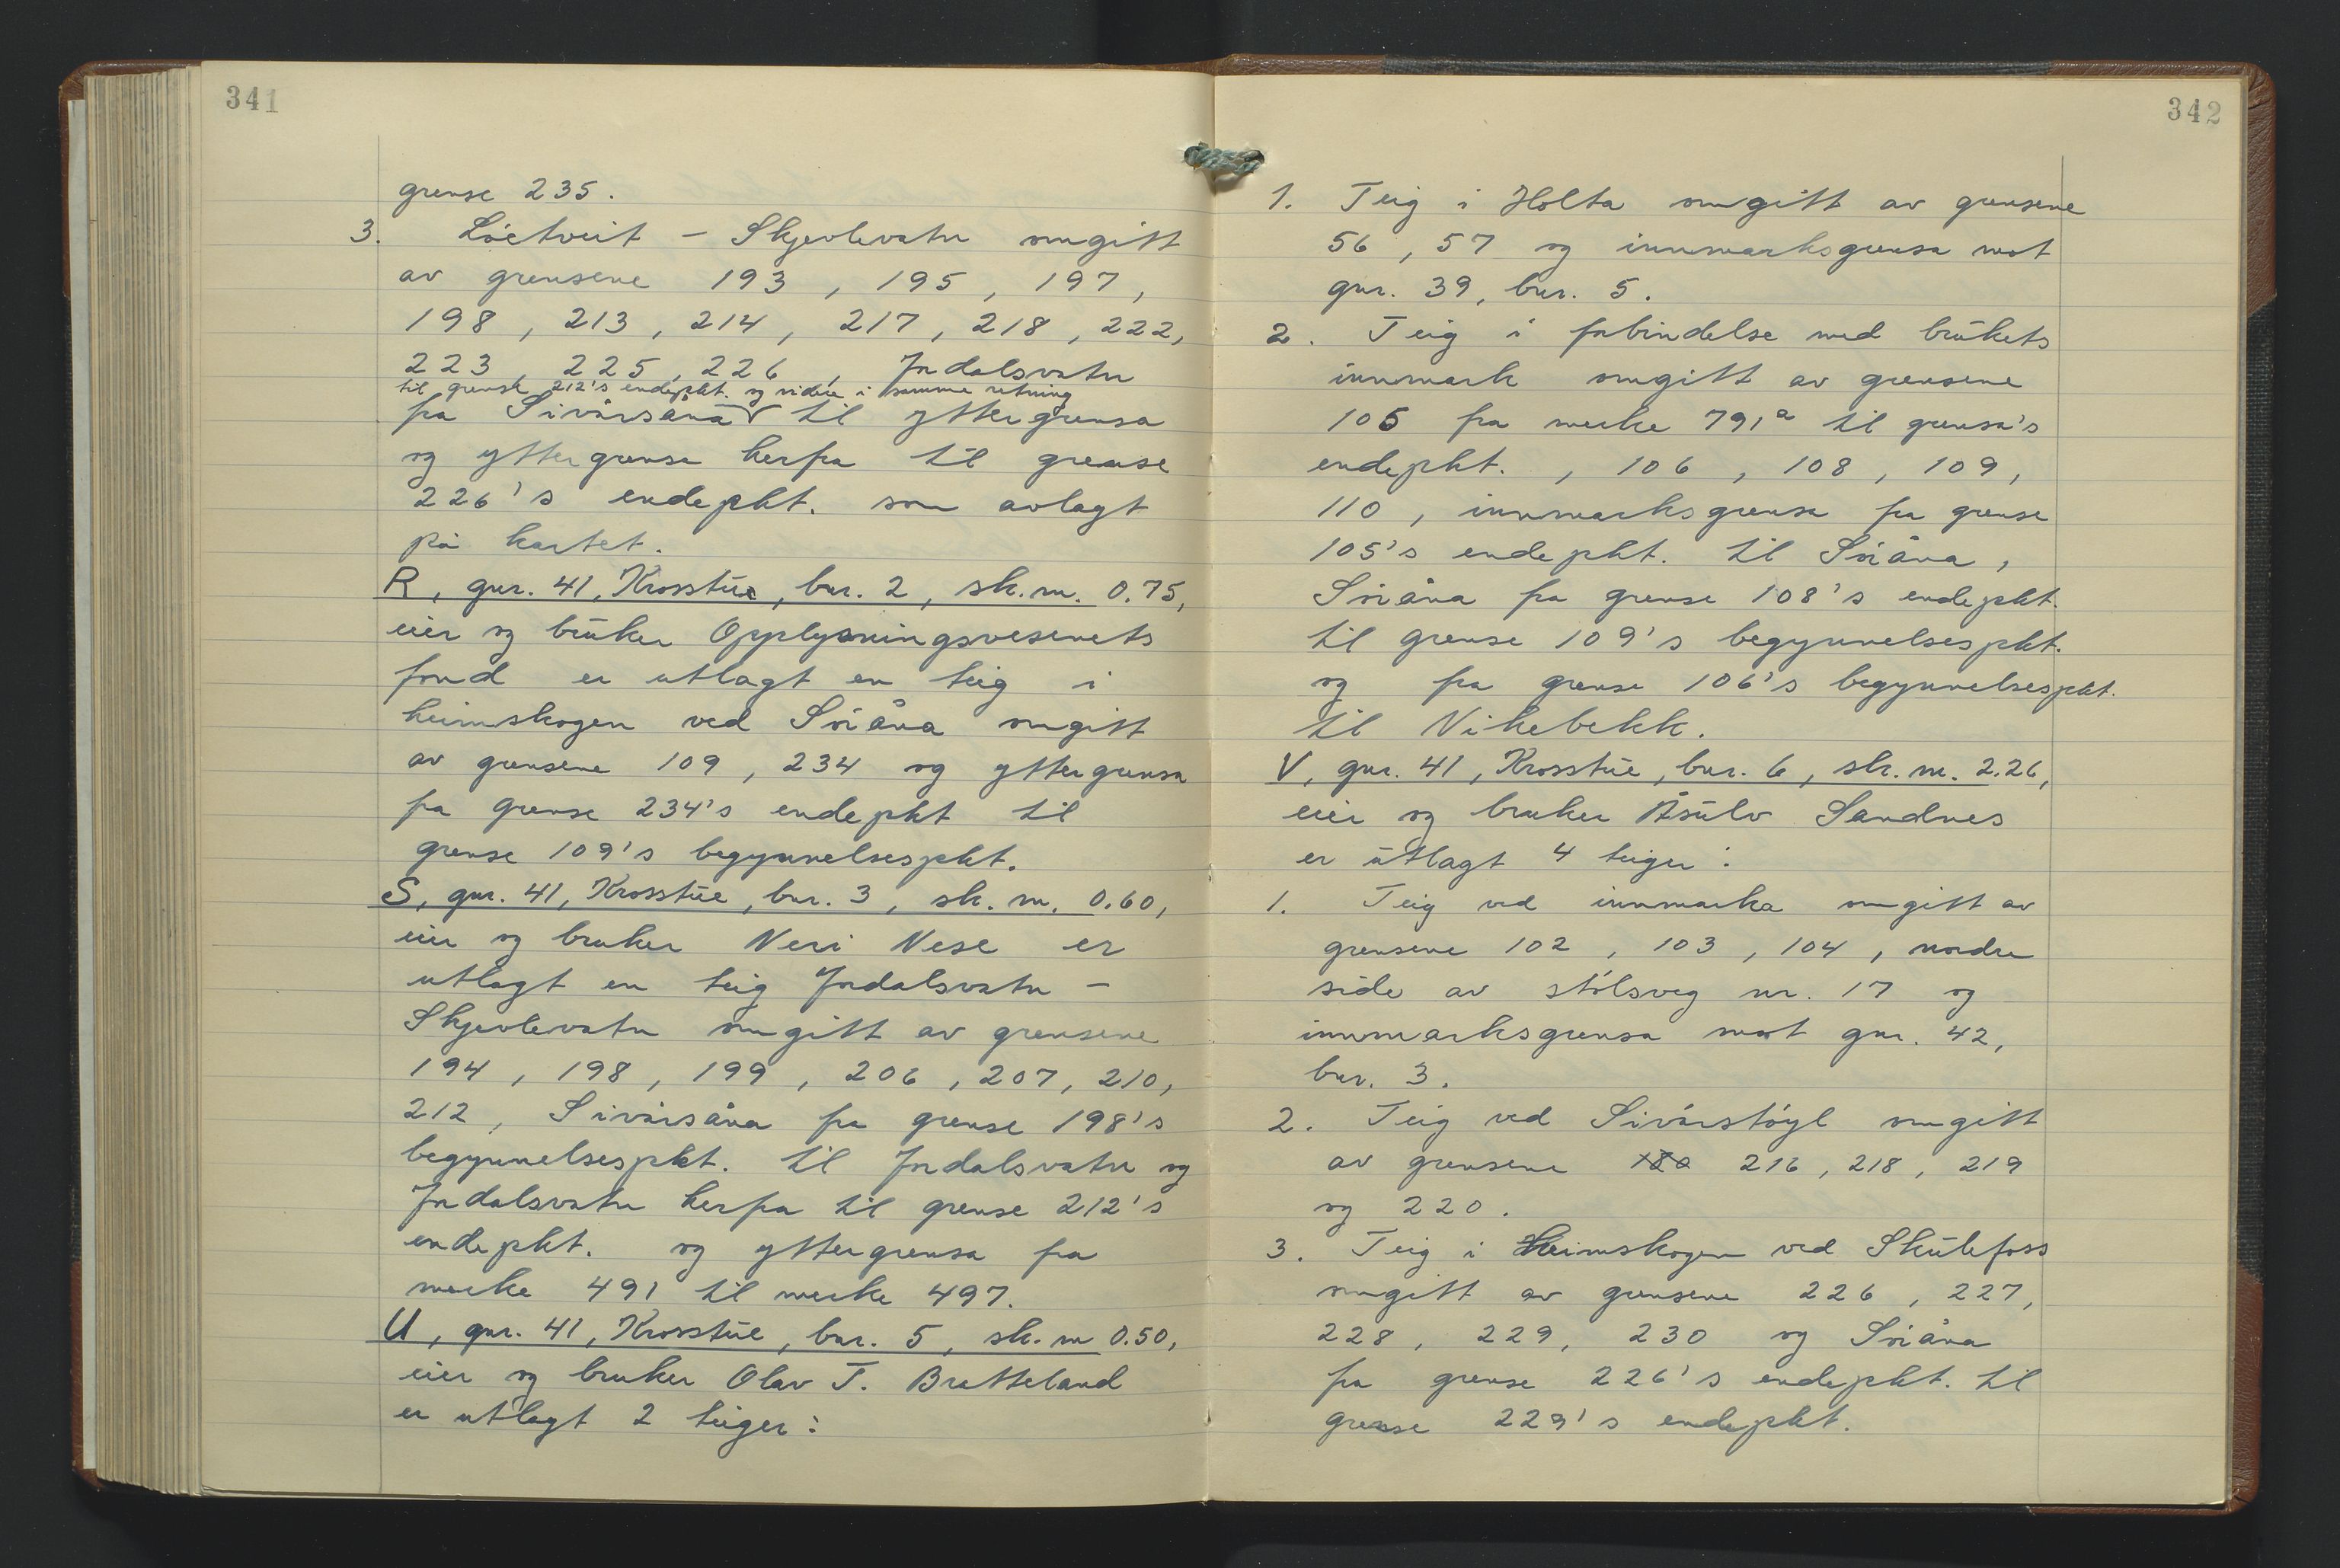 341
grense 235.
3. Löetveit - Skjevlevatn omgitt
av grensene 193, 195, 197,
198, 213, 214, 217, 218, 222,
223, 225, 226, Jndalsvatn
til grense 212's endepkt. og videre i samme retning
fra Sivårsåna til yttergrensa
og yttergrense herfra til grense
226's endepkt. som avlagt
på kartet.
R, gnr. 41, Krosstüe, bnr. 2, sk.m. 0.75,
eier og brüker Opplysningsvesenets
fond er utlagt en teig i
heimskogen ved Sviåna omgitt
av grensene 109, 234 og yttergrensa
fra grense 234's endepkt til
grense 109's begynnelsespkt.
S, gnr. 41, Krosstüe, bnr. 3, sk. m. 0.60,
eier og bruker Neri Nese er
utlagt en teig Jndalsvatn -
Skjevlevatn omgitt av grensene
194, 198, 199, 206, 207, 210,
212, Sivårsåna fra grense 198's
begynnelsespkt. til Jndalsvatn og
Jndalsvatn herfra til grense 212's
endepkt. og yttergrensa fra
merke 491 til merke 497.
U, gnr. 41, Krosstüe, bnr. 5, sk. m 0.50,
eier og bruker Olav T. Bratteland
er utlagt 2 teiger:
342
1. Teig i Holta omgitt av grensene
56, 57 og innmarksgrensa mot
gnr. 39, bnr. 5.
2. Teig i forbindelse med brükets
innmark omgitt av grensene
105 fra merke 791a til grensa's
endepkt., 106, 108, 109,
110, innmarksgrensa fra grense
105's endepkt. til Sviåna,
Sviåna fra grense 108's endepkt.
til grense 109's begynnelsespkt.
og fra grense 106's begynnelsespkt.
til Vikebekk.
V, gnr. 41, Krosstüe, bnr. 6, sk. m. 2.26,
eier og bruker Åsülv Sandnes
er ütlagt 4 teiger:
1. Teig ved innmarka omgitt av
grensene 102, 103, 104, nordre
side av stölsveg nr. 17 og
innmarksgrensa mot gnr. 42,
bnr. 3.
2. Teig ved Sivårstöyl omgitt
av grensene 180 216, 218, 219
og 220.
3. Teig i Heimskogen ved Skülefoss
omgitt av grensene 226, 227,
228, 229, 230 og Sviåna
fra grense 226's endepkt. til
grense 229's endepkt.